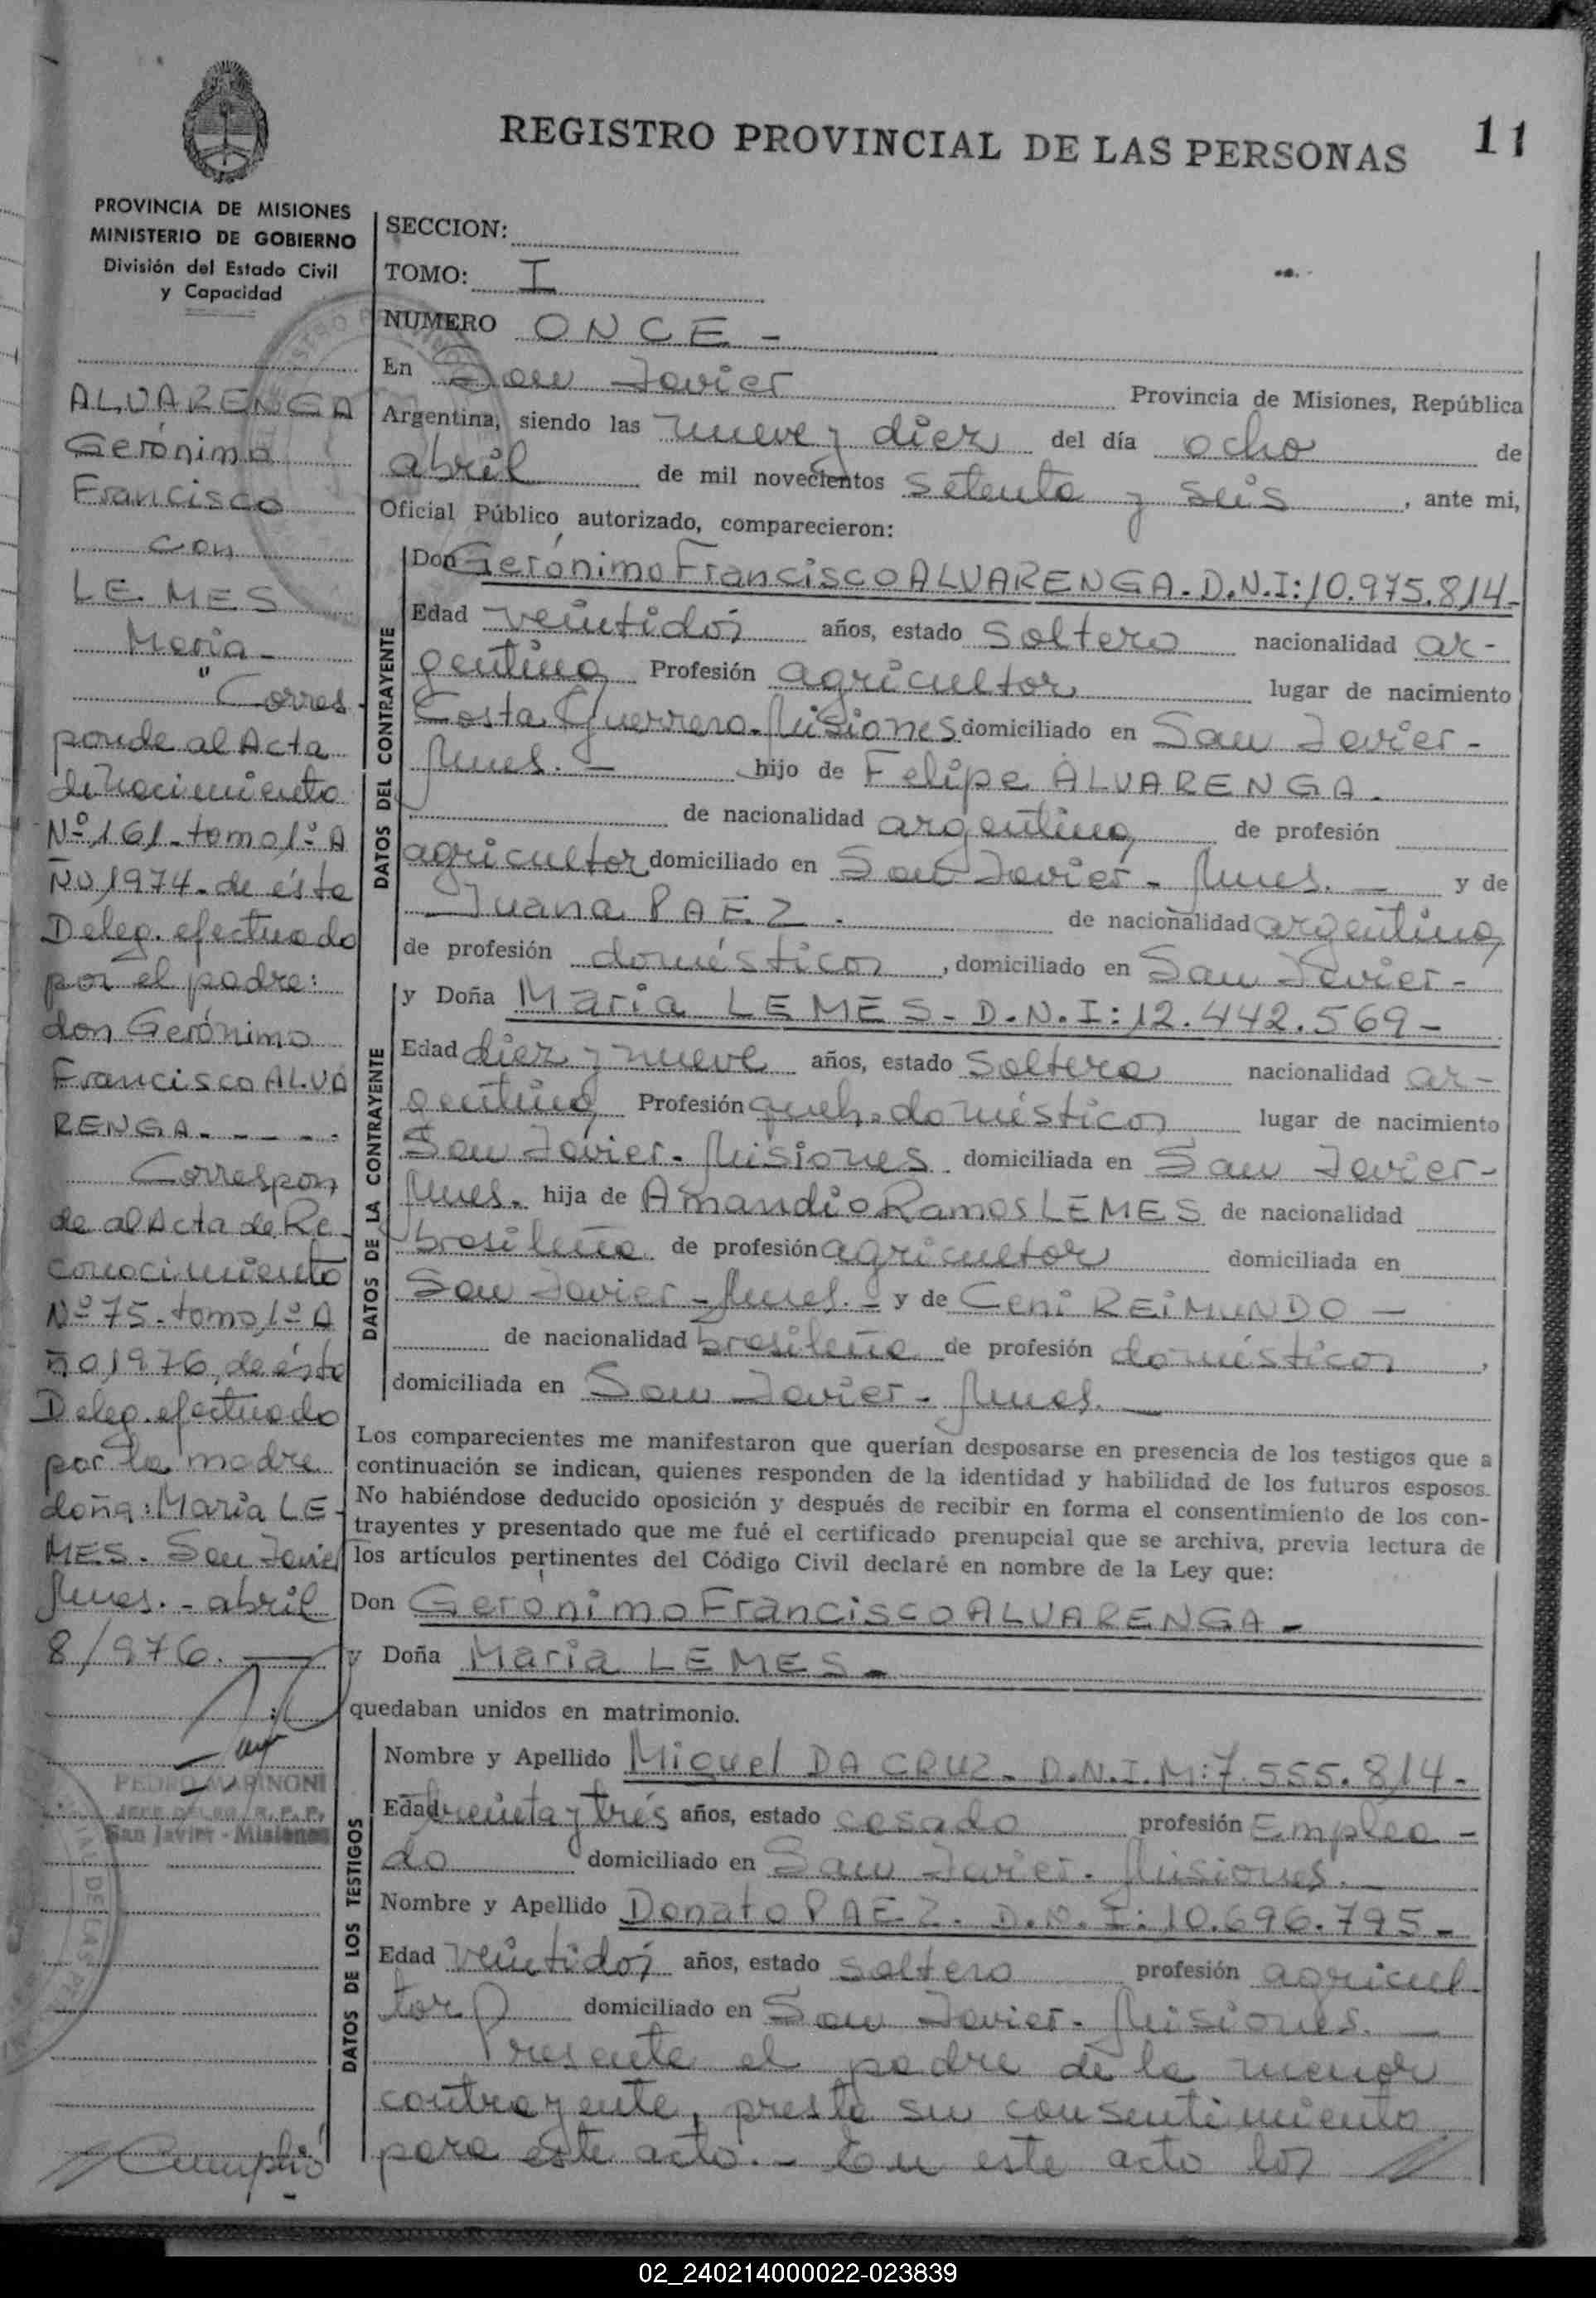 REGISTRO PROVINCIAL DE LAS PERSONAS
11
PROVINCIA DE MISIONES
MINISTERIO DE GOBIERNO
División del Estado Civil
y Capacidad
ALVARENGA
Gerónimo
Francisco
con
LEMES
María-
"Corres
ponde al Acta
de Nacimiento
Nº161-tomo1ºA
ÑO1974-de ésta
Deleg.efectuado
por el padre:
don Gerónimo
Francisco ALVA
RENGA-----
Correspon
de al Acta de Re-
conocimiento
Nº75-tomo1ºA
ño1976,de ésta
Deleg.efectuado
por la madre
doña:María LE-
MES. San Javier
Mnes.-abril
8/976.
PEDRO MARINONI
JEFE DELEG. R. P. P.
San Javier - Misiones
// Cumplió
SECCION:
TOMO: I
NUMERO ONCE-
En San Javier Provincia de Misiones, República
Argentina, siendo las nueve y diez del día ocho de
abril de mil novecientos setenta y seis, ante mi,
Oficial Público autorizado, comparecieron:
DATOS DEL CONTRAYENTE
Don Gerónimo Francisco ALVARENGA.D.N.I:10.975.814-
Edad veintidos años, estado soltero nacionalidad ar-
gentina Profesión agricultor lugar de nacimiento
Costa Guerrero-Misiones domiciliado en San Javier-
Mnes.- hijo de Felipe ALVARENGA.
de nacionalidad argentina de profesión
agricultor domiciliado en San Javier-Mnes.- y de
Juana PAEZ. de nacionalidad argentina
de profesión domésticos, domiciliado en San Javier-
DATOS DE LA CONTRAYENTE
y Doña María LEMES-D.N.I:12.442.569-
Edad diez y nueve años, estado soltera nacionalidad ar-
gentina Profesión queh.domésticos lugar de nacimiento
San Javier-Misiones domiciliada en San Javier-
Mnes. hija de Amandio Ramos LEMES de nacionalidad
brasileña de profesión agricultor domiciliada en
San Javier-Mnes.- y de Ceni REIMUNDO-
de nacionalidad brasileña de profesión domésticos,
domiciliada en San Javier-Mnes.
Los comparecientes me manifestaron que querían desposarse en presencia de los testigos que a
continuación se indican, quienes responden de la identidad y habilidad de los futuros esposos.
No habiéndose deducido oposición y después de recibir en forma el consentimiento de los con-
trayentes y presentado que me fué el certificado prenupcial que se archiva, previa lectura de
los artículos pertinentes del Código Civil declaré en nombre de la Ley que:
Don Gerónimo Francisco ALVARENGA-
y Doña María LEMES-
quedaban unidos en matrimonio.
DATOS DE LOS TESTIGOS
Nombre y Apellido Miguel DA CRUZ-D.N.I.M:7.555.814-
Edad treinta y trés años, estado casado profesión Emplea-
do domiciliado en San Javier-Misiones.
Nombre y Apellido Donato PAEZ. D.N.I:10.696.795-
Edad veintidos años, estado soltero profesión agricul
tor domiciliado en San Javier-Misiones.
Presente el padre de la menor
contrayente, presta su consentimiento
para este acto.- En este acto los //
02_240214000022-023839